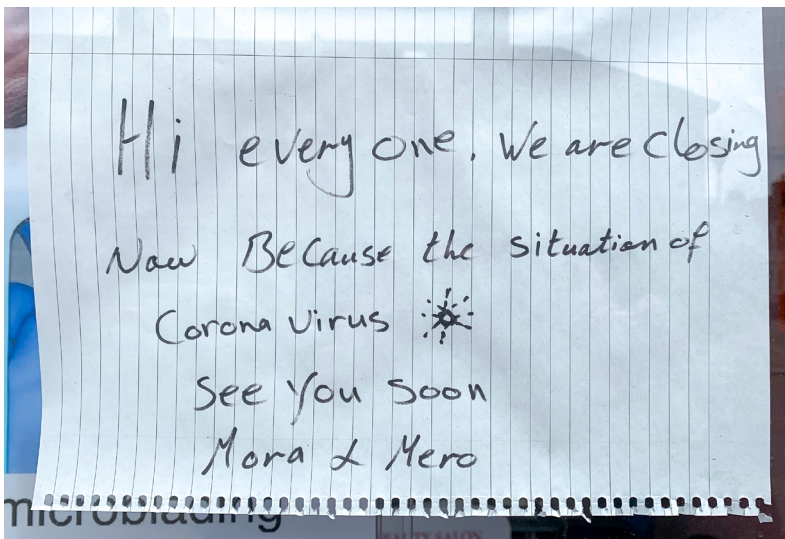 Hi every one, We are closing
Now Because the situation of
Corona virus
See You Soon
Mora & Mero
microblading
BEAUTY SALON